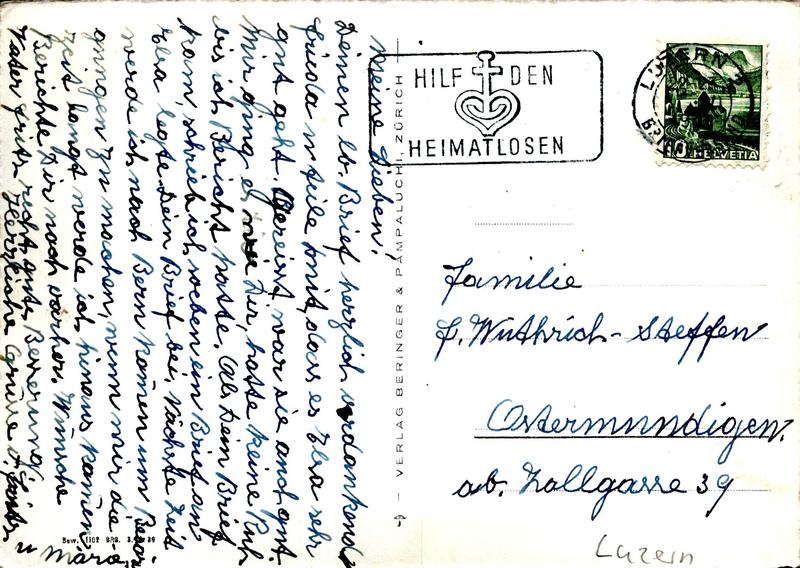 Meine Lieben!
Deinen lb. Brief herzlich verdankend
Frieda m teile mit, dass es Elsa sehr
gut geht. Gereist war sie auch gut,
Mir ging es wie Dir, hatte keine Ruh
bis ich Bericht hatte. Als Dein Brief
kam, schrieb ich soeben ein Brief an
Elsa legte Dein Brief bei, nächste Zeit
werde ich nach Bern kommen um Besor
gungen zu machen, wenn mir die
Zeit langt werde ich hinaus kommen
Berichte Dir noch vorher. Wünsche
Vater Fritz recht gute Besserung.
Herzliche Grüsse v.
u Maria
VERLAG BERINGER & PAMPALUCHI, ZÜRICH
Bew. 1102 BRB. 3.
HILF DEN
HEIMATLOSEN
LUZERN
10 HELVETIA
Familie
F. Wüthrich-Steffen
Ostermundigen.
ob. Zollgasse 39
Luzern